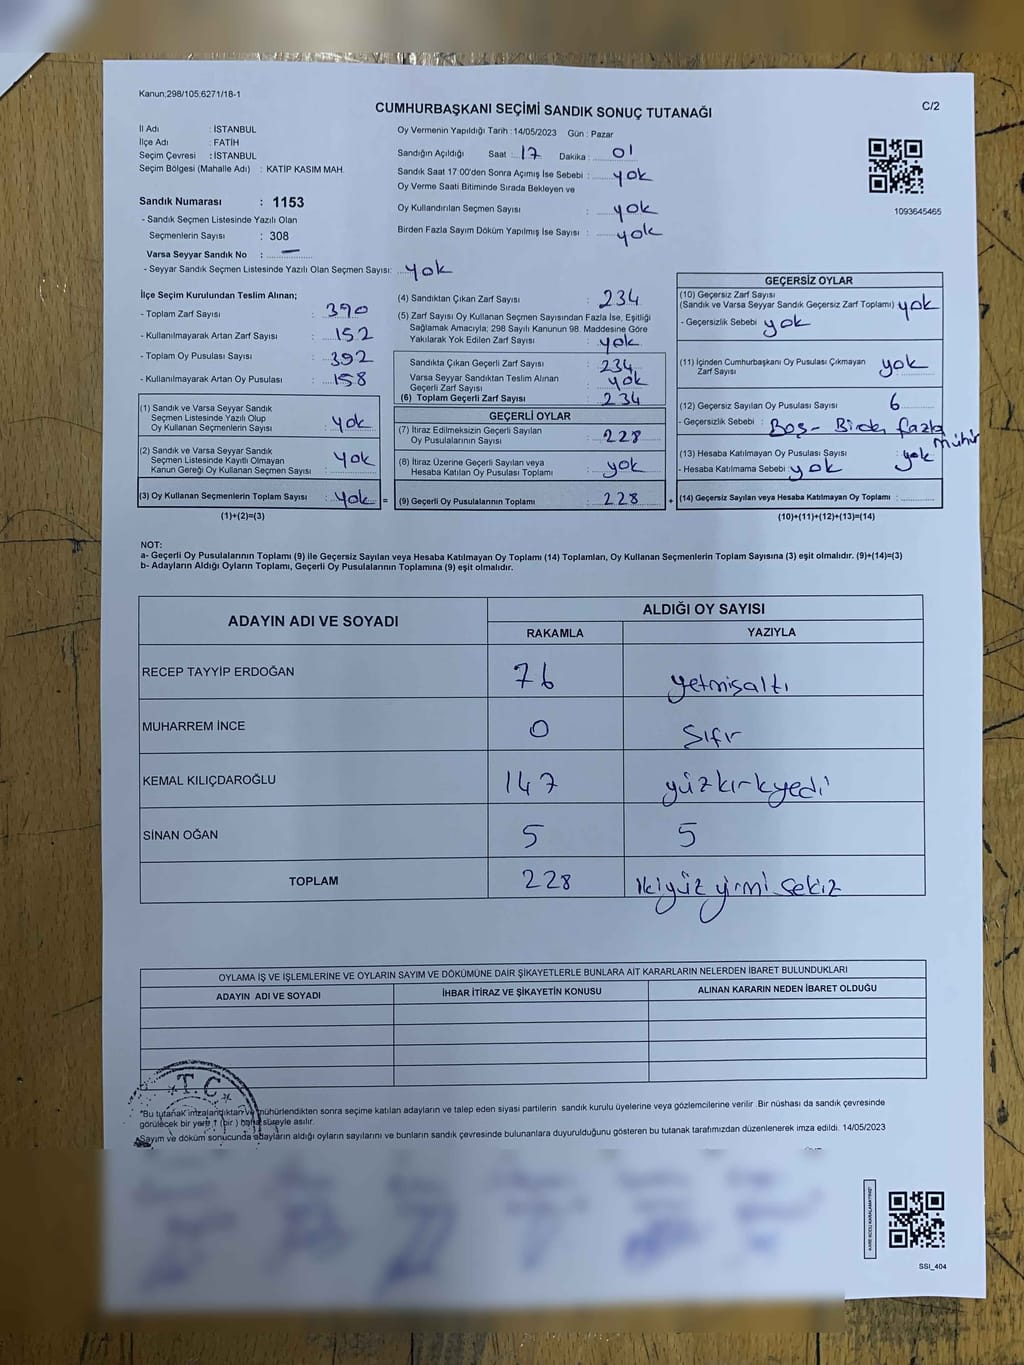 Kanun;298/105;6271/18-1
CUMHURBAŞKANI SEÇİMİ SANDIK SONUÇ TUTANAĞI
C/2
İl Adı : İSTANBUL
İlçe Adı : FATİH
Seçim Çevresi : İSTANBUL
Seçim Bölgesi (Mahalle Adı) : KATİP KASIM MAH.
Sandık Numarası : 1153
- Sandık Seçmen Listesinde Yazılı Olan
Seçmenlerin Sayısı : 308
Varsa Seyyar Sandık No : —
- Seyyar Sandık Seçmen Listesinde Yazılı Olan Seçmen Sayısı: yok
Oy Vermenin Yapıldığı Tarih : 14/05/2023 Gün : Pazar
Sandığın Açıldığı Saat : 17 Dakika : 01
Sandık Saat 17:00'den Sonra Açımış İse Sebebi : yok
Oy Verme Saati Bitiminde Sırada Bekleyen ve
Oy Kullandırılan Seçmen Sayısı : yok
Birden Fazla Sayım Döküm Yapılmış İse Sayısı : yok
1093645465
İlçe Seçim Kurulundan Teslim Alınan;
- Toplam Zarf Sayısı : 390
- Kullanılmayarak Artan Zarf Sayısı : 152
- Toplam Oy Pusulası Sayısı : 392
- Kullanılmayarak Artan Oy Pusulası : 158
(1) Sandık ve Varsa Seyyar Sandık
Seçmen Listesinde Yazılı Olup
Oy Kullanan Seçmenlerin Sayısı : yok
(2) Sandık ve Varsa Seyyar Sandık
Seçmen Listesinde Kayıtlı Olmayan
Kanun Gereği Oy Kullanan Seçmen Sayısı : yok
(3) Oy Kullanan Seçmenlerin Toplam Sayısı : yok =
(1)+(2)=(3)
(4) Sandıktan Çıkan Zarf Sayısı : 234
(5) Zarf Sayısı Oy Kullanan Seçmen Sayısından Fazla İse, Eşitliği
Sağlamak Amacıyla; 298 Sayılı Kanunun 98. Maddesine Göre
Yakılarak Yok Edilen Zarf Sayısı : yok
Sandıkta Çıkan Geçerli Zarf Sayısı : 234
Varsa Seyyar Sandıktan Teslim Alınan
Geçerli Zarf Sayısı : yok
(6) Toplam Geçerli Zarf Sayısı : 234
GEÇERLİ OYLAR
(7) İtiraz Edilmeksizin Geçerli Sayılan
Oy Pusulalarının Sayısı : 228
(8) İtiraz Üzerine Geçerli Sayılan veya
Hesaba Katılan Oy Pusulası Toplamı : yok
(9) Geçerli Oy Pusulalarının Toplamı : 228 +
GEÇERSİZ OYLAR
(10) Geçersiz Zarf Sayısı
(Sandık ve Varsa Seyyar Sandık Geçersiz Zarf Toplamı) yok
- Geçersizlik Sebebi : yok
(11) İçinden Cumhurbaşkanı Oy Pusulası Çıkmayan
Zarf Sayısı yok
(12) Geçersiz Sayılan Oy Pusulası Sayısı : 6
- Geçersizlik Sebebi : Boş - Birden fazla
mühür
(13) Hesaba Katılmayan Oy Pusulası Sayısı : yok
- Hesaba Katılmama Sebebi : yok
(14) Geçersiz Sayılan veya Hesaba Katılmayan Oy Toplamı :
(10)+(11)+(12)+(13)=(14)
NOT:
a- Geçerli Oy Pusulalarının Toplamı (9) ile Geçersiz Sayılan veya Hesaba Katılmayan Oy Toplamı (14) Toplamları, Oy Kullanan Seçmenlerin Toplam Sayısına (3) eşit olmalıdır. (9)+(14)=(3)
b- Adayların Aldığı Oyların Toplamı, Geçerli Oy Pusulalarının Toplamına (9) eşit olmalıdır.
ADAYIN ADI VE SOYADI
ALDIĞI OY SAYISI
RAKAMLA YAZIYLA
RECEP TAYYİP ERDOĞAN 76 yetmişaltı
MUHARREM İNCE 0 Sıfır
KEMAL KILIÇDAROĞLU 147 yüzkırkyedi
SİNAN OĞAN 5 5
TOPLAM 228 ikiyüz yirmi sekiz
OYLAMA İŞ VE İŞLEMLERİNE VE OYLARIN SAYIM VE DÖKÜMÜNE DAİR ŞİKAYETLERLE BUNLARA AİT KARARLARIN NELERDEN İBARET BULUNDUKLARI
ADAYIN ADI VE SOYADI İHBAR İTİRAZ VE ŞİKAYETİN KONUSU ALINAN KARARIN NEDEN İBARET OLDUĞU
T.C
*Bu tutanak imzalandıktan ve mühürlendikten sonra seçime katılan adayların ve talep eden siyasi partilerin sandık kurulu üyelerine veya gözlemcilerine verilir .Bir nüshası da sandık çevresinde
görülecek bir yere 1 (bir ) hafta süreyle asılır.
*Sayım ve döküm sonucunda adayların aldığı oyların sayılarını ve bunların sandık çevresinde bulunanlara duyurulduğunu gösteren bu tutanak tarafımızdan düzenlenerek imza edildi. 14/05/2023
KARE KODU KARALAMAYINIZ!
SSI_404